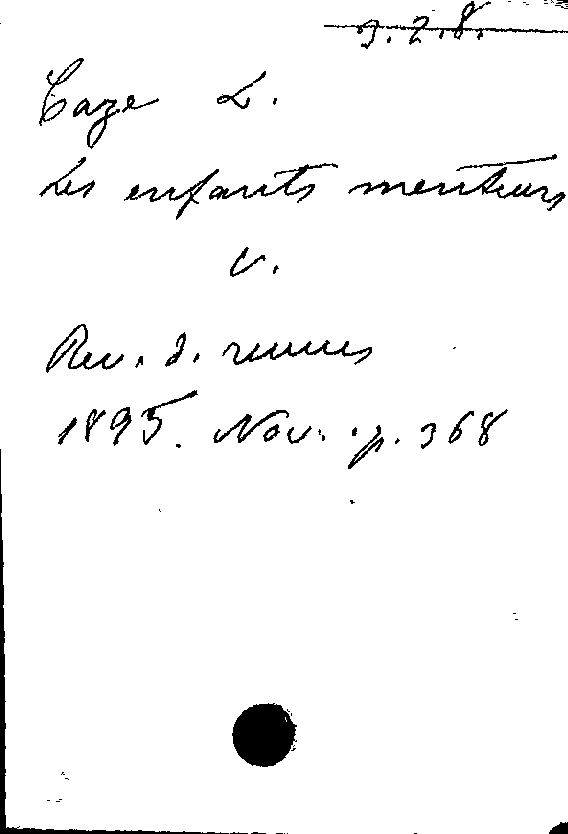 3.2.8.
Caze L.
Les enfants menteurs
v.
Rev. d. revues
1895. Nov. p. 368